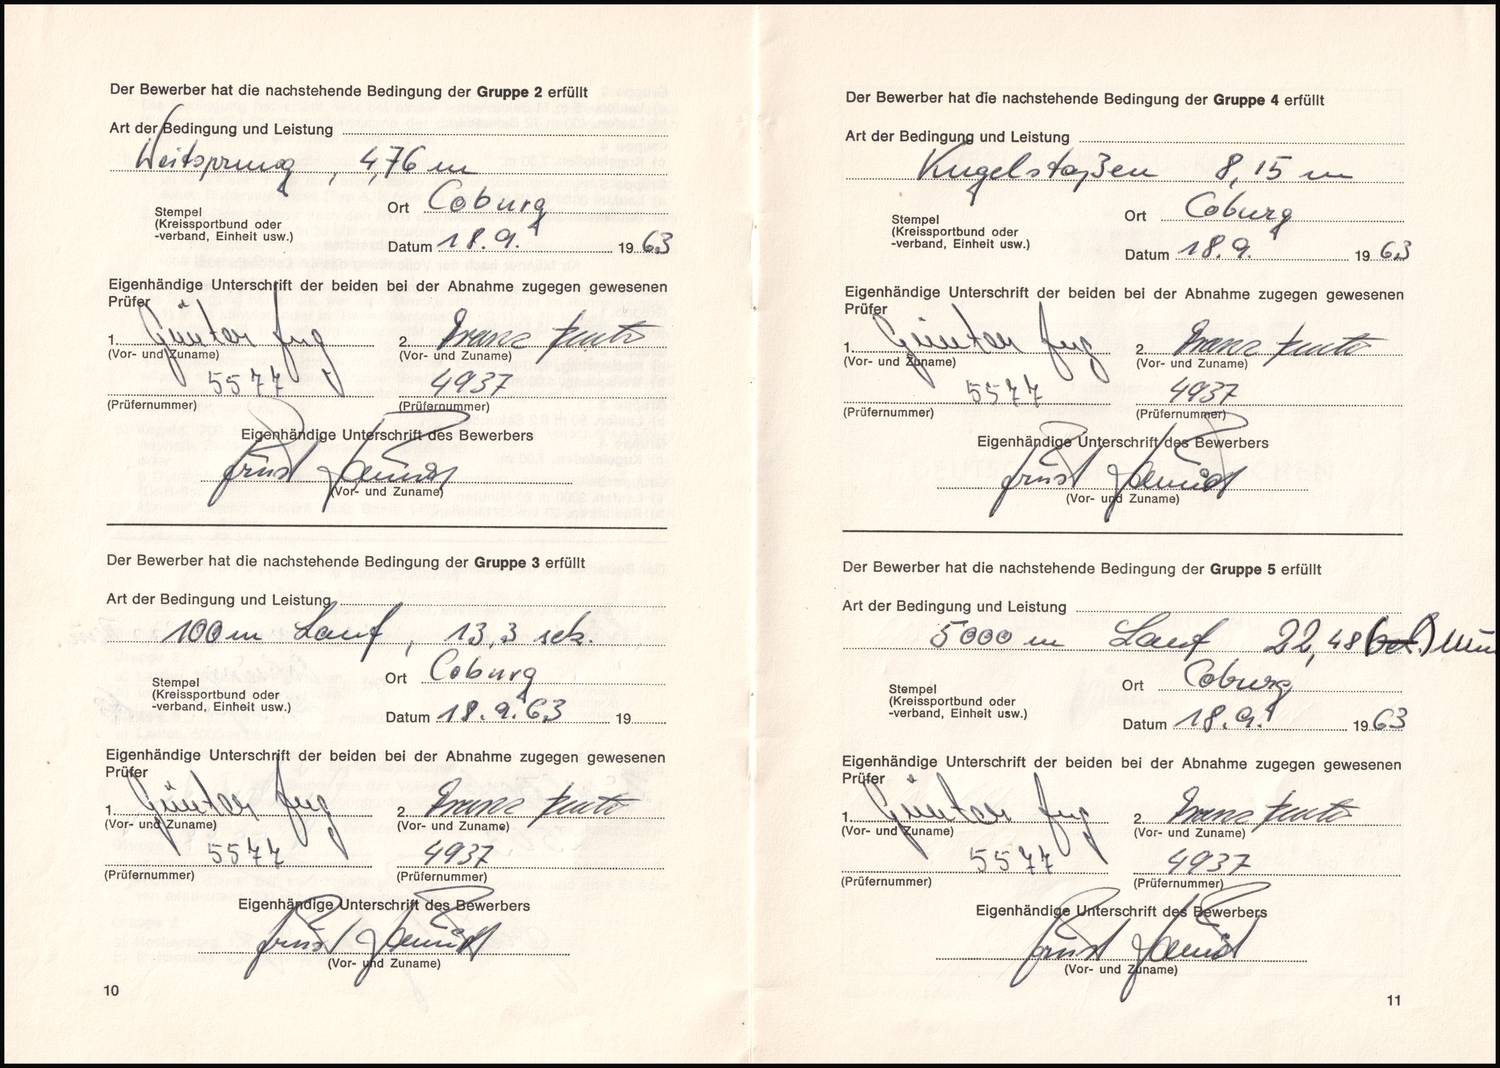 Der Bewerber hat die nachstehende Bedingung der Gruppe 2 erfüllt
Art der Bedingung und Leistung
Weitsprung, 4,76 m
Stempel
(Kreissportbund oder
-verband, Einheit usw.)
Ort Coburg
Datum 18.9. 1963
Eigenhändige Unterschrift der beiden bei der Abnahme zugegen gewesenen
Prüfer
1. Günter 2. Franz
(Vor- und Zuname) (Vor- und Zuname)
5577 4937
(Prüfernummer) (Prüfernummer)
Eigenhändige Unterschrift des Bewerbers
Ernst Schmidt
(Vor- und Zuname)
Der Bewerber hat die nachstehende Bedingung der Gruppe 3 erfüllt
Art der Bedingung und Leistung
100 m Lauf, 13,3 sek.
Stempel
(Kreissportbund oder
-verband, Einheit usw.)
Ort Coburg
Datum 18.9.63 19
Eigenhändige Unterschrift der beiden bei der Abnahme zugegen gewesenen
Prüfer
1. Günter 2. Franz
(Vor- und Zuname) (Vor- und Zuname)
5577 4937
(Prüfernummer) (Prüfernummer)
Eigenhändige Unterschrift des Bewerbers
Ernst Schmidt
(Vor- und Zuname)
10
Der Bewerber hat die nachstehende Bedingung der Gruppe 4 erfüllt
Art der Bedingung und Leistung
Kugelstoßen 8,15 m
Stempel
(Kreissportbund oder
-verband, Einheit usw.)
Ort Coburg
Datum 18.9. 1963
Eigenhändige Unterschrift der beiden bei der Abnahme zugegen gewesenen
Prüfer
1. Günter 2. Franz
(Vor- und Zuname) (Vor- und Zuname)
5577 4937
(Prüfernummer) (Prüfernummer)
Eigenhändige Unterschrift des Bewerbers
Ernst Schmidt
(Vor- und Zuname)
Der Bewerber hat die nachstehende Bedingung der Gruppe 5 erfüllt
Art der Bedingung und Leistung
5000 m Lauf 22,48 Min
Stempel
(Kreissportbund oder
-verband, Einheit usw.)
Ort Coburg
Datum 18.9. 1963
Eigenhändige Unterschrift der beiden bei der Abnahme zugegen gewesenen
Prüfer
1. Günter 2. Franz
(Vor- und Zuname) (Vor- und Zuname)
5577 4937
(Prüfernummer) (Prüfernummer)
Eigenhändige Unterschrift des Bewerbers
Ernst Schmidt
(Vor- und Zuname)
11